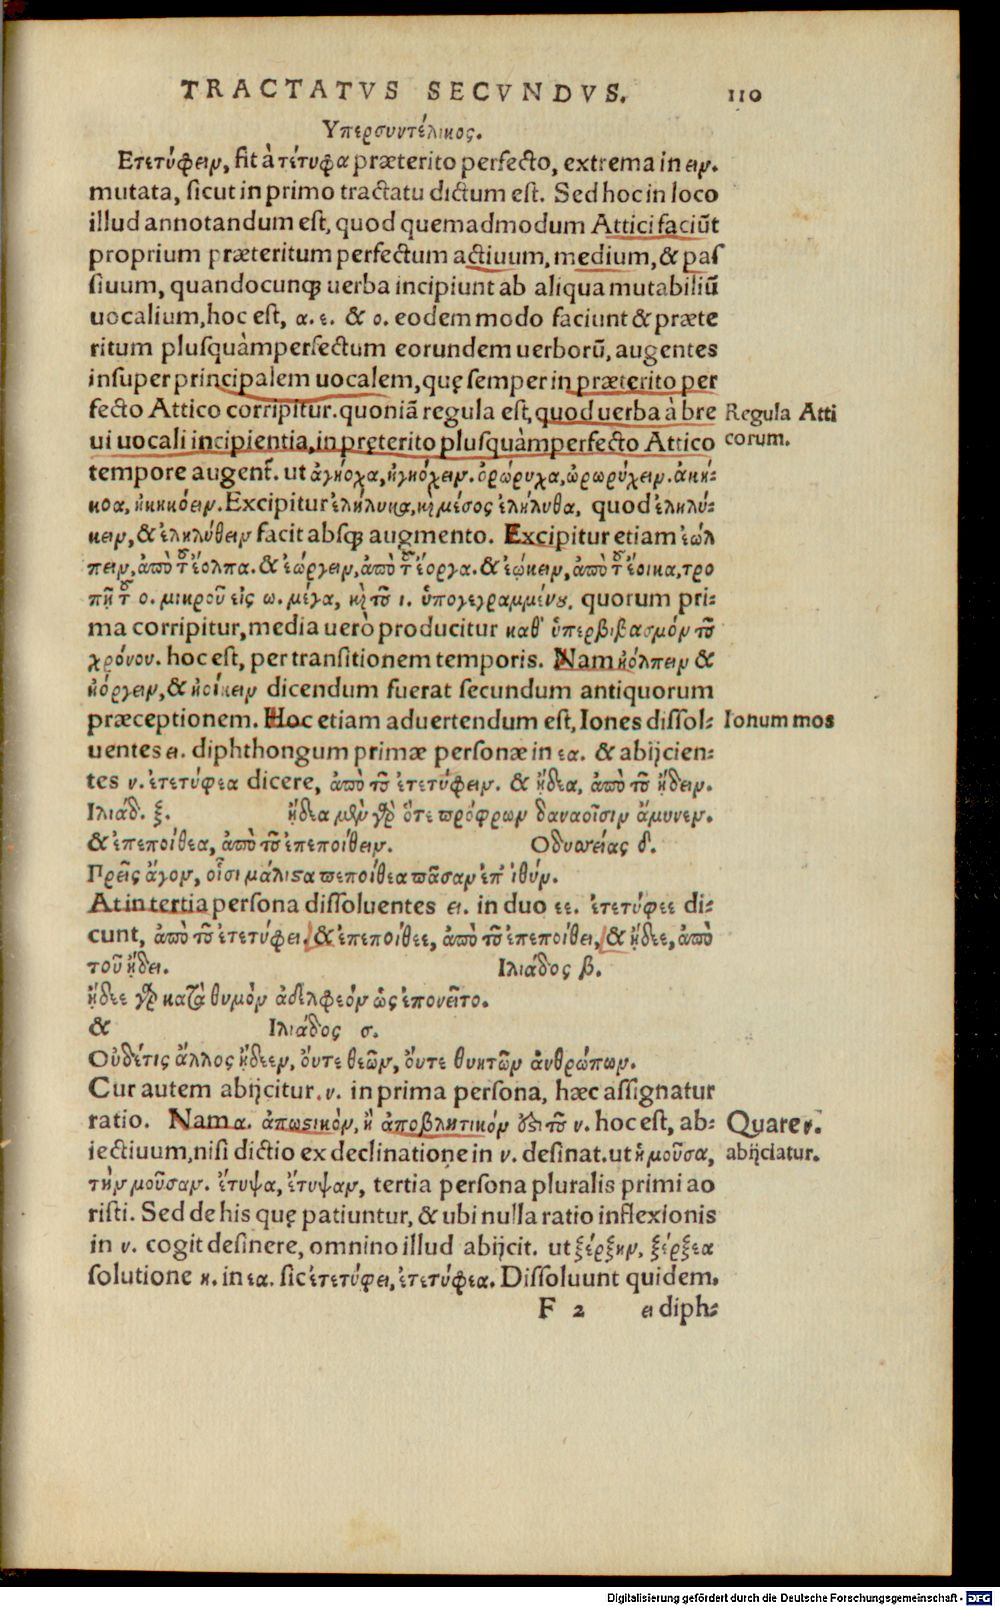 TRACTATVS SECVNDVS. 110
Υπερσυντέλικος.
Ετετύφειν, fit à τέτυφα præterito perfecto, extrema in ειν.
mutata, sicut in primo tractatu dictum est. Sed hoc in loco
illud annotandum est, quod quemadmodum Attici faciūt
proprium præteritum perfectum actiuum, medium, & pas
siuum, quandocunqꝫ uerba incipiunt ab aliqua mutabiliū
uocalium, hoc est, α. ε. & ο. eodem modo faciunt & præte
ritum plusquàmperfectum eorundem uerborū, augentes
insuper principalem uocalem, quę semper in præterito per
fecto Attico corripitur. quoniā regula est, quod uerba à bre
Regula Atti
ui uocali incipientia, in pręterito plusquàmperfecto Attico
corum.
tempore augent̄. ut ἀγήοχα, ἠγηόχειν. ὀρώρυχα, ὠρωρύχειν. ἀκή⸗
κοα, ἠκηκόειν. Excipitur ἐλήλυκα, κỳ μέσος ἐλήλυθα, quod ἐληλύ⸗
κειν, & ἐληλύθειν facit absqꝫ augmento. Excipitur etiam ἐώλ
πειν, ἀπὸ τ͂ ἔολπα. & ἐώργειν, ἀπὸ τ͂ ἔοργα. & ἐῴκειν, ἀπὸ τ͂ ἔοικα, τρο
πῇ τ͂ ο. μικροῦ εἰς ω. μέγα, κỳ τοῦ ι. ὑπογεγραμμένου, quorum pri⸗
ma corripitur, media uerò producitur καθ' ὑπερβιβασμὸν τοῦ
χρόνου. hoc est, per transitionem temporis. Nam ἠόλπειν &
ἠόργειν, & ἠοίκειν dicendum fuerat secundum antiquorum
præceptionem. Hoc etiam aduertendum est, Iones dissol⸗
Ionum mos
uentes ει. diphthongum primæ personæ in εα. & abijcien⸗
tes ν. ἐτετύφεα dicere, ἀπὸ τοῦ ἐτετύφειν. & ᾔδεα, ἀπὸ τοῦ ᾔδειν.
Ιλιάδ. ξ. ᾔδεα μὲν γὰρ ὅτε πρόφρων δαναοῖσιν ἄμυνεν.
& ἐπεποίθεα, ἀπὸ τοῦ ἐπεποίθειν. Οδυσσείας δ.
Πρεῖς ἄγον, οἷσι μάλιστα πεποίθεα πᾶσαν ἐπ' ἰθύν.
At in tertia persona dissoluentes ει. in duo εε. ἐτετύφεε di⸗
cunt, ἀπὸ τοῦ ἐτετύφει. & ἐπεποίθεε, ἀπὸ τοῦ ἐπεποίθει, & ᾔδεε, ἀπὸ
τοῦ ᾔδει. Ιλιάδος β.
ᾔδεε γὰρ κατὰ θυμὸν ἀδελφεὸν ὡς ἐπονεῖτο.
& Ιλιάδος σ.
Οὐδέτις ἄλλος ᾔδεεν, οὔτε θεῶν, οὔτε θνητῶν ἀνθρώπων.
Cur autem abijcitur. ν. in prima persona, hæc assignatur
ratio. Nam α. ἀπωστικὸν, ἢ ἀποβλητικόν ἐστι τοῦ ν. hoc est, ab⸗
Quare ν.
iectiuum, nisi dictio ex declinatione in ν. desinat. ut ἡ μοῦσα,
abijciatur.
τὴν μοῦσαν. ἔτυψα, ἔτυψαν, tertia persona pluralis primi ao
risti. Sed de his quę patiuntur, & ubi nulla ratio inflexionis
in ν. cogit desinere, omnino illud abijcit. ut ξέρξην, ξέρξεα
solutione η. in εα. sic ἐτετύφει, ἐτετύφεα. Dissoluunt quidem.
F 2 ει diph⸗
Digitalisierung gefördert durch die Deutsche Forschungsgemeinschaft - DFG